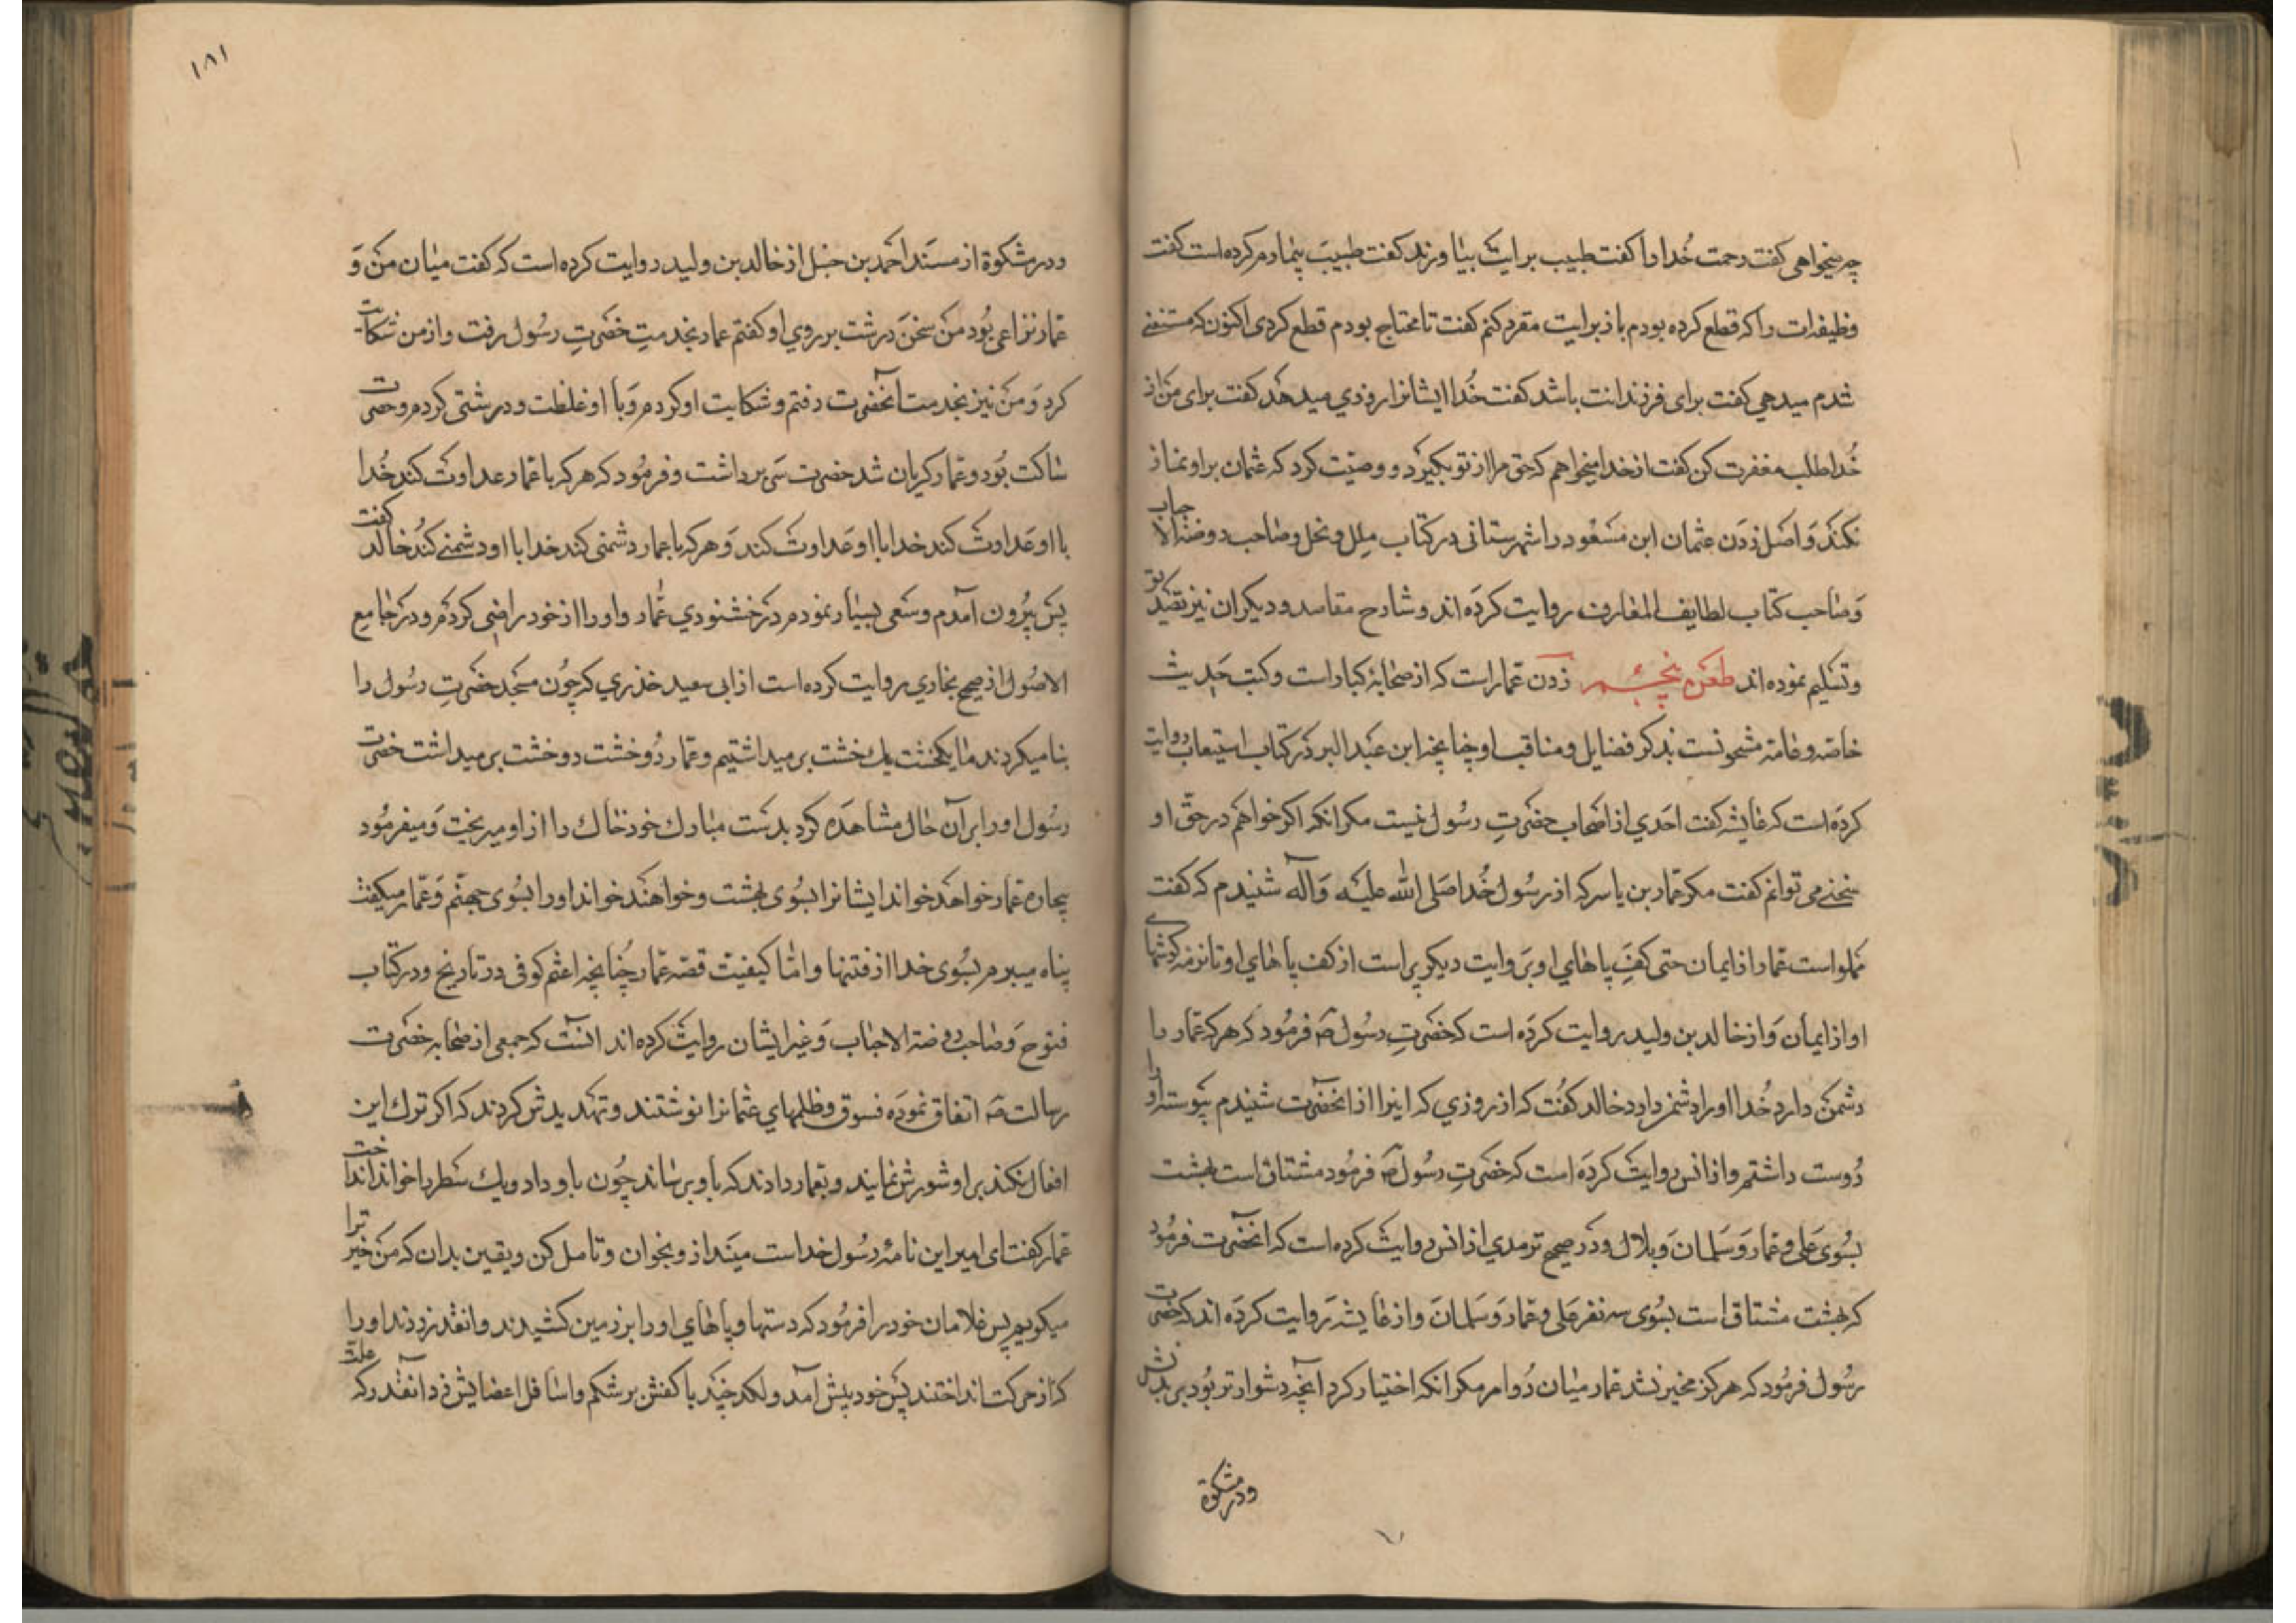 چه میخواهی گفت رحمت خُدا را گفت طبیب برایت بیاورند گفت طبیبَ بیمارم کرده است گفت
وظیفه‌ات را که قطع کرده بودم باز برایت مقرر کنم گفت تا محتاج بودم قطع کردی اکنون که مستغنی
شدم میدهی گفت برای فرزندانت باشد گفت خُدا ایشانرا روزی میدهد گفت برای من از
خُدا طلب مغفرت کن گفت از خدا میخواهم که حق مرا از تو بگیرد و وصیّت کرد که عثمان بر او نماز
نکند وَ اصل زدن عثمان ابن مسعُود را شهرستانی در کتاب ملل و نحل و صاحب روضة الاحباب
وَ صاحب کتاب لطایف المعارف روایت کردَه اند و شارح مقاصد و دیگران نیز تصدیق
و تسلیم نموده اند طعن پنجم زدن عمّار است که از صحابۀ کبار است و کتب حدیث
خاصّه و عامّه مشحونست بذکر فضایل و مناقب او چنانچه ابن عَبد البر در کتاب استیعاب روایت
کردَه است که عایشه گفت احَدی از اصحاب حضرتِ رسُول نیست مگر انکه اگر خواهم در حقّ او
سخنی می توانم گفت مگر عمّار بن یاسر که از رسُول خُدا صَلی الله علیه وَ آله شنیدم که گفت
مملو است عمّار از ایمان حتی کفِ پاهای او و بروایت دیگر پر است از کف پاهای او تا نرمه گوشهای
او از ایمان وَ از خالد بن ولید روایت کردَه است که حضرتِ رسُول صه فرمُود که هر که عمّار را
دشمن دارد خُدا او را دشمن دارد خالد گفت که از روزی که اینرا از انحضرت شنیدم پیوسته او را
دُوست داشتم و از انس روایت کردَه است که حضرتِ رسُول صه فرمُود مشتاق است بهشت
بسُوی عَلی و عمّار وَ سَلمان وَ بلال و در صحیح ترمدی از انس روایت کرده است که انحضرت فرمُود
که بهشت مشتاق است بسُوی سه نفر عَلی و عمّار وَ سَلمان وَ از عایشه روایت کردَه اند که حضرت
رسُول فرمُود که هرکز مخیر نشد عمّار میان دُو امر مگر انکه اختیار کرد آنچه دشوارتر بُود بر بدنش
و در مشکوة
۱۸۱
و در مشکوة از مسَند احمد بن حنبل از خالد بن ولید روایت کرده است که گفت میان من وَ
عمّار نزاعی بُود من سخن درشت بر روی او گفتم عمار بخدمتِ حضرتِ رسُول رفت و از من شکایت
کرد وَ من نیز بخدمت آنحضرت رفتم و شکایت او کردم و با او غلظت و درشتی کردم و حضرت
ساکت بُود و عمّار گریان شد حضرت سر برداشت و فرمُود که هر که با عمّار عداوت کند خُدا
با او عَداوت کند خدا با او عَداوت کند وَ هر که با عمار دشمنی کند خدا با او دشمنی کند خالد گفت
پس بیرُون آمدم و سَعی بسیار نمودم در خشنودی عمّار و او را از خود راضی کردم و در جامع
الاصُول از صحیح بخاری روایت کرده است از ابی سعید خذری که چُون مسجد حضرتِ رسُول را
بنا میکردند ما یکخشت یک خشت بر میداشتیم و عمّار دُو خشت دو خشت بر میداشت حضرت
رسُول او را بر آن حال مشاهدَه کرد بدست مبارک خود خاک را از او میریخت وَ میفرمُود
بیچاره عمّار خواهد خواند ایشانرا بسُوی بهشت و خواهند خواند او را بسُوی جهنّم وَ عمّار میگفت
پناه میبرم بسُوی خدا از فتنها و امّا کیفیّت قصّه عمّار چُنانچه اعثم کوفی در تاریخ و در کتاب
فتوح وَ صاحب روضة الاحباب وَ غیر ایشان روایت کرده اند انست که جمعی از صحابه حضرت
رسالت صه اتفاق نموده فسوق و ظلمهای عثمانرا نوشتند و تهدیدش کردند که اگر ترک این
افعال نکند بر او شورش نمایند و بعمار دادند که باو برساند چُون باو داد و یک سَطر را خواند انداخت
عمّار گفت ای امیر این نامۀ رسُول خداست مینداز و بخوان و تامل کن و یقین بدان که من خیر ترا
میگویم پس غلامان خود را فرمُود که دستها و پاهای او را بر زمین کشیدند و انقدر زدند او را
که از حرکت انداختند پس خود پیش آمد و لگد چند با کفش بر شکم و اسافل اعضایش زد انقدر که علت